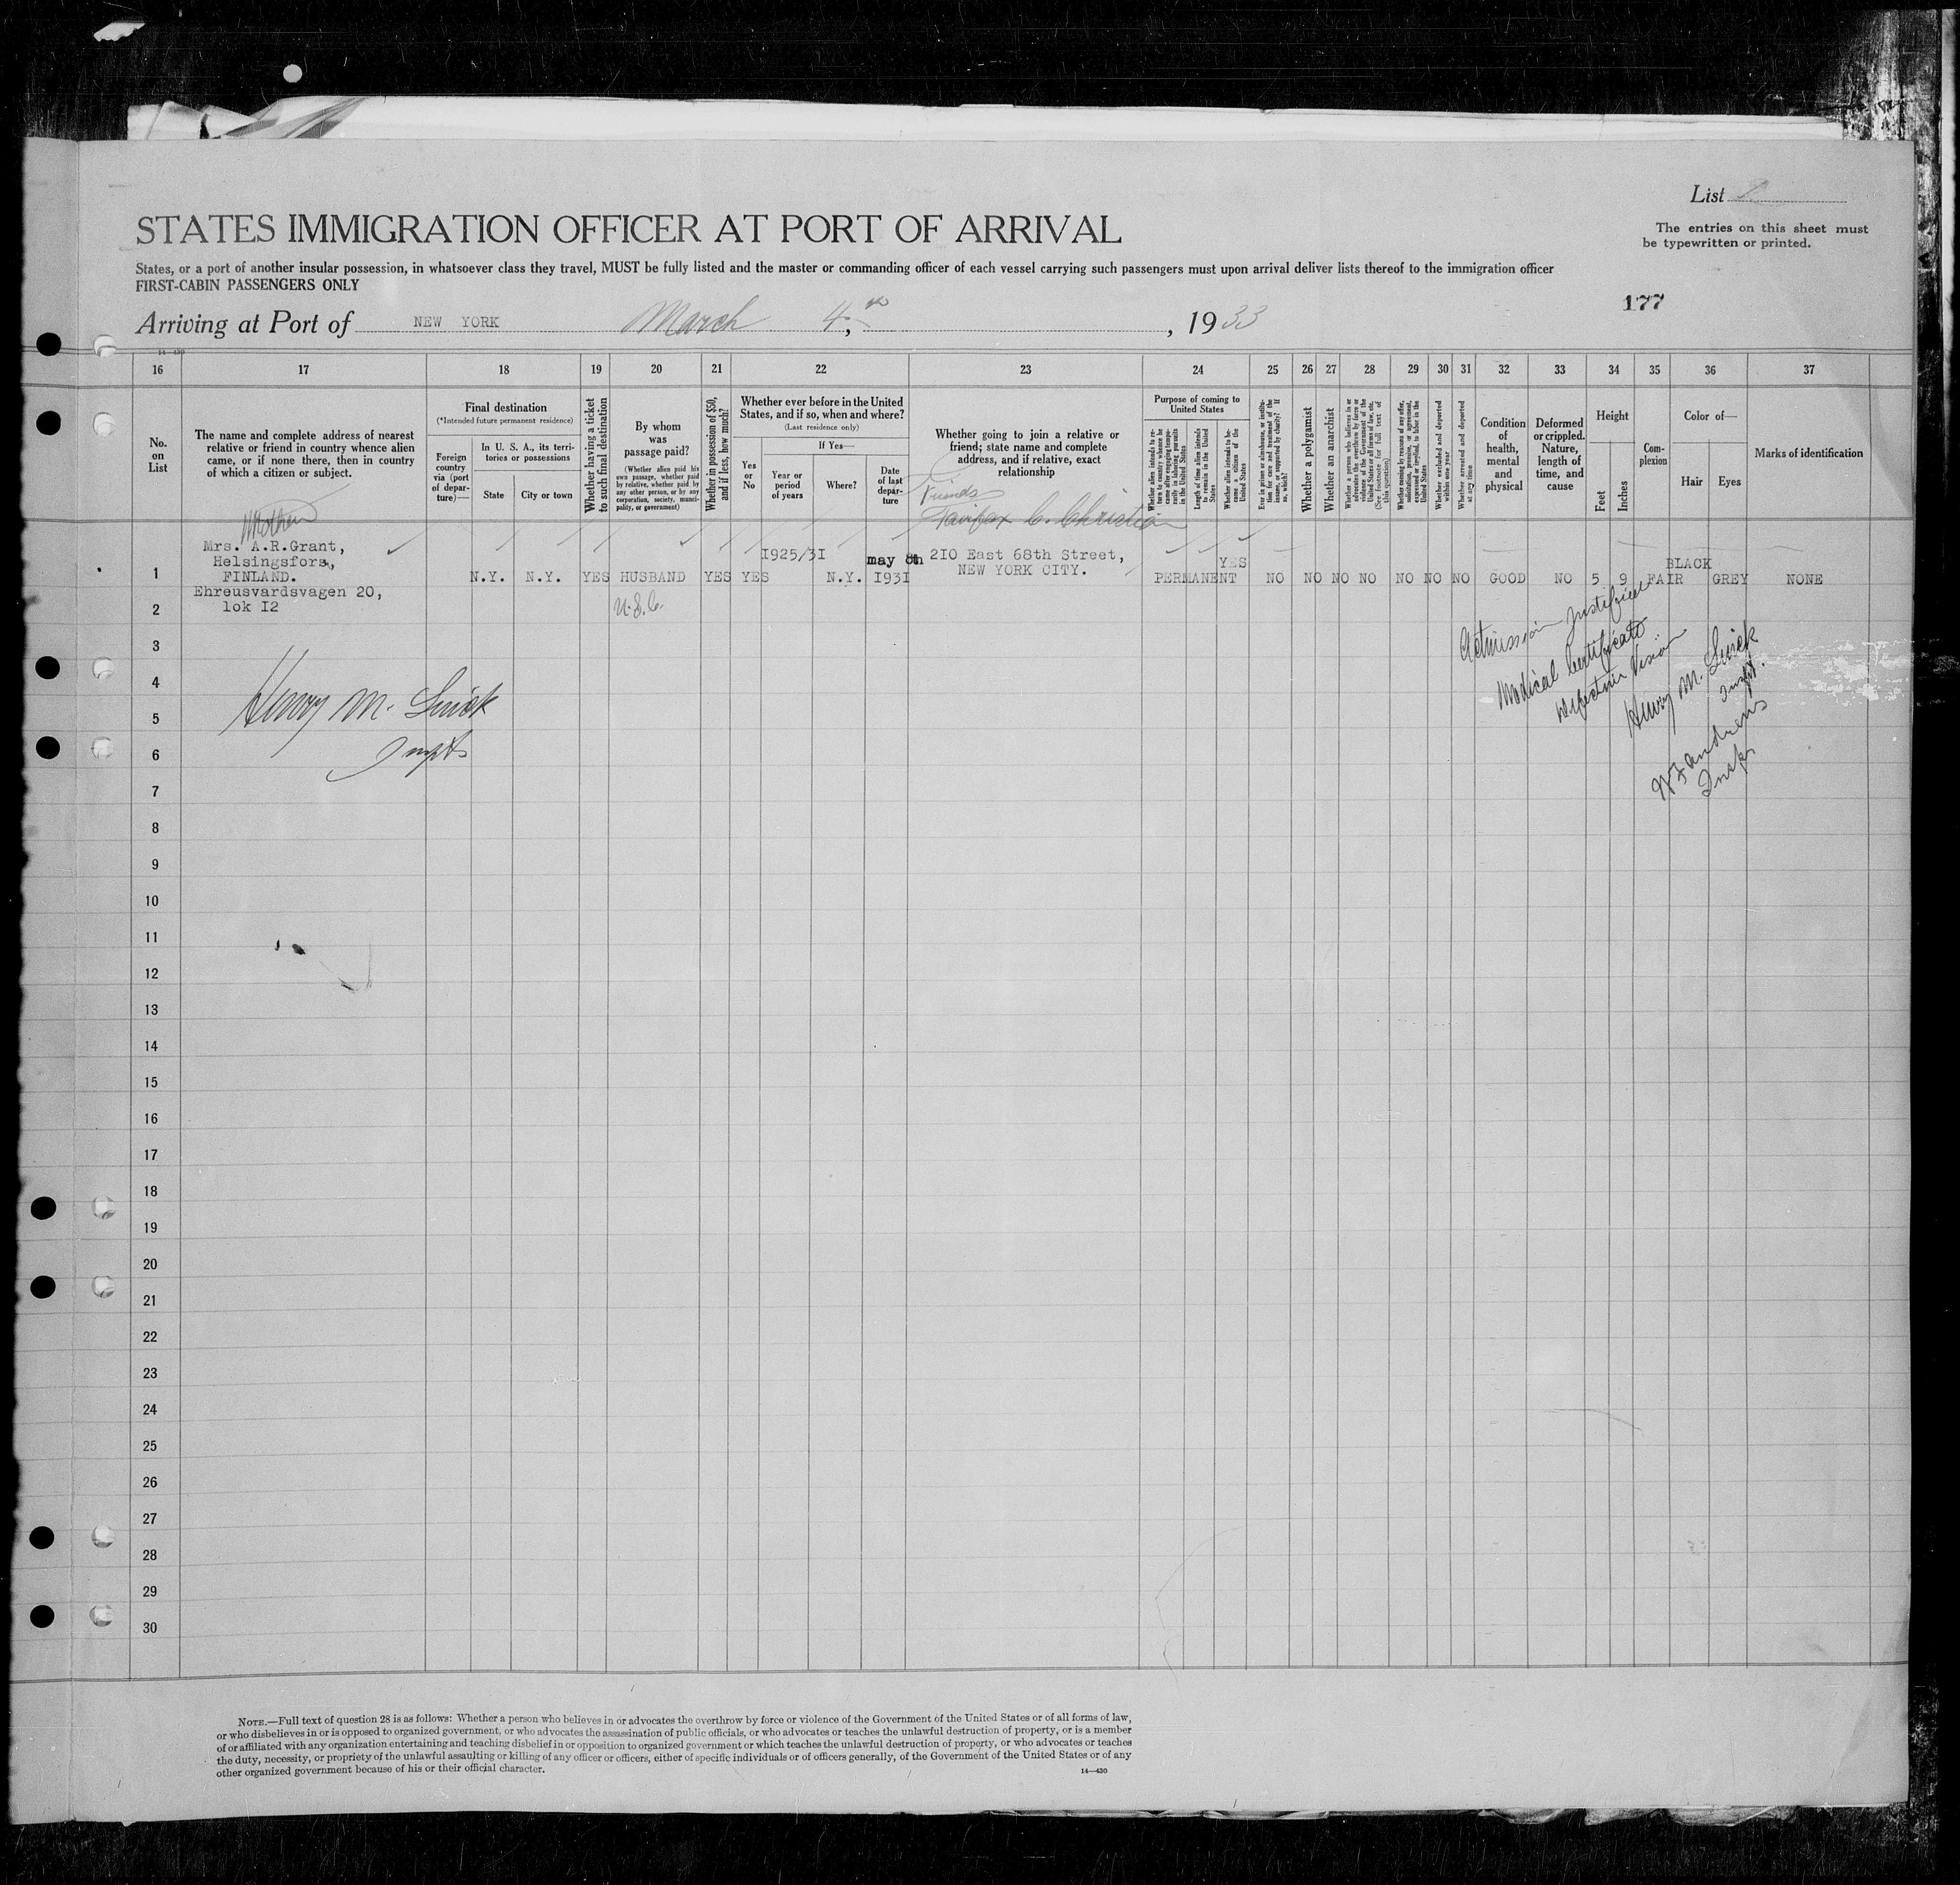 List
STATES IMMIGRATION OFFICER AT PORT OF ARRIVAL
The entries on this sheet must
be typewritten or printed.
States, or a port of another insular possession, in whatsoever class they travel, MUST be fully listed and the master or commanding officer of each vessel carrying such passengers must upon arrival deliver lists thereof to the immigration officer
FIRST-CABIN PASSENGERS ONLY
177
Arriving at Port of NEW YORK March 4, th, 1933
14—430
16 17 18 19 20 21 22 23 24 25 26 27 28 29 30 31 32 33 34 35 36 37
No. on List
The name and complete address of nearest
relative or friend in country whence alien
came, or if none there, then in country
of which a citizen or subject.
Final destination
(*Intended future permanent residence)
Foreign
country
via (port
of depar-
ture)—
In U. S. A., its terri-
tories or possessions
State
City or town
Whether having a ticket
to such final destination
By whom
was
passage paid?
(Whether alien paid his
own passage, whether paid
by relative, whether paid by
any other person, or by any
corporation, society, munici-
pality, or government)
Whether in possession of $50,
and if less, how much?
Whether ever before in the United
States, and if so, when and where?
(Last residence only)
Yes
or
No
If Yes—
Year or
period
of years
Where?
Date
of last
depar-
ture
Whether going to join a relative or
friend; state name and complete
address, and if relative, exact
relationship
Purpose of coming to
United States
Whether alien intends to re-
turn to country whence he
came after engaging tempo-
rarily in laboring pursuits
in the United States
Length of time alien intends
to remain in the United
States
Whether alien intends to be-
come a citizen of the
United States
Ever in prison or almshouse, or institu-
tion for care and treatment of the
insane, or supported by charity? If
so, which?
Whether a polygamist
Whether an anarchist
Whether a person who believes in or
advocates the overthrow by force or
violence of the Government of the
United States or all forms of law, etc.
(See footnote for full text of
this question)
Whether coming by reasons of any offer,
solicitation, promise, or agreement,
expressed or implied, to labor in the
United States
Whether excluded and deported
within one year
Whether arrested and deported
at any time
Condition
of
health,
mental
and
physical
Deformed
or crippled.
Nature,
length of
time, and
cause
Height
Feet
Inches
Com-
plexion
Color of—
Hair
Eyes
Marks of identification
Mother
Friends
Fairfax C. Christian
Mrs. A.R.Grant,
Helsingsfors,
FINLAND.
Ehreusvardsvagen 20,
lok I2
1 N.Y. N.Y. YES HUSBAND YES YES I925/3I N.Y. may 8th I93I
U.S.C.
2IO East 68th Street,
NEW YORK CITY.
YES
PERMANENT NO NO NO NO NO NO NO GOOD NO 5 9 FAIR BLACK GREY NONE
2
3
4
5
6
7
8
9
10
11
12
13
14
15
16
17
18
19
20
21
22
23
24
25
26
27
28
29
30
Henry M.
Inspt
Admission Justified
Medical Certificate
Defective Vision
Henry M.
Inspt.
Andrews
Insp
NOTE.—Full text of question 28 is as follows: Whether a person who believes in or advocates the overthrow by force or violence of the Government of the United States or of all forms of law,
or who disbelieves in or is opposed to organized government, or who advocates the assassination of public officials, or who advocates or teaches the unlawful destruction of property, or is a member
of or affiliated with any organization entertaining and teaching disbelief in or opposition to organized government or which teaches the unlawful destruction of property, or who advocates or teaches
the duty, necessity, or propriety of the unlawful assaulting or killing of any officer or officers, either of specific individuals or of officers generally, of the Government of the United States or of any
other organized government because of his or their official character.
14—430